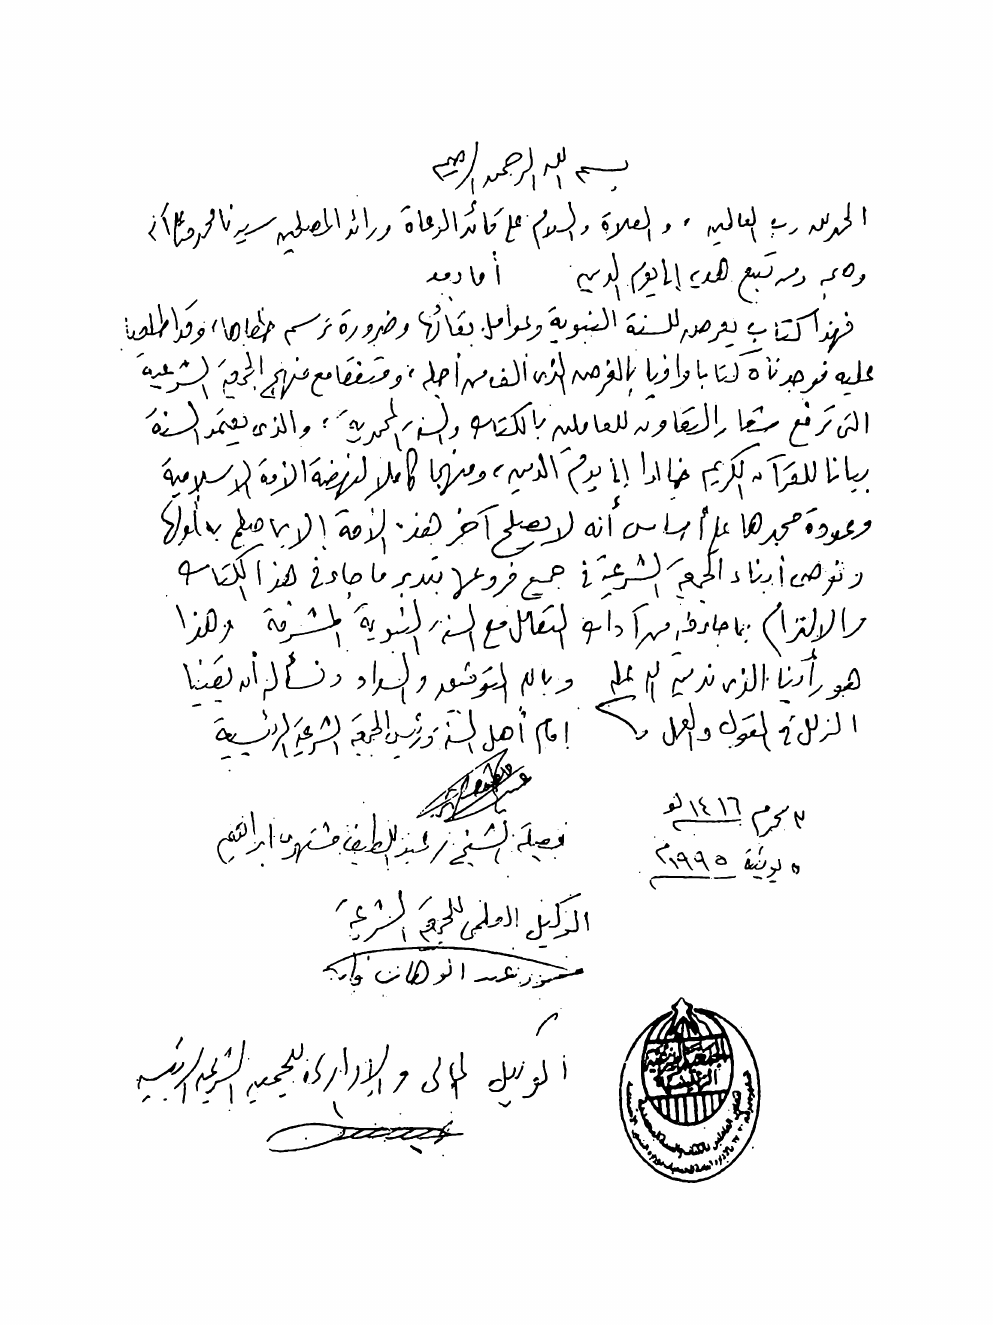 بسم الله الرحمن الرحيم
الحمد لله رب العالمين ، والصلاة والسلام على قائد الدعاة ورائد المصلحين سيدنا محمد وعلى آله
وصحبه ومن تبع هديه إلى يوم الدين أما بعد
فهذا كتاب يعرض للسنة النبوية وعوامل بقائها وضرورة ترسم خطاها ، وقد اطلعنا
عليه فوجدناه كتابا وافيا بالغرض الذى ألف من أجله ، ومتفقا مع منهج الجمعية الشرعية
التى ترفع شعار التعاون للعاملين بالكتاب والسنة المحمدية ، والذى يعتمد السنة
بيانا للقرآن الكريم خالدا إلى يوم الدين ، ومنهجا كاملا لنهضة الأمة الإسلامية
وعودة مجدها على أساس أنه لا يصلح آخر هذه الأمة إلا بما صلح به أولها
ونوصى أبناء الجمعية الشرعية فى جميع فروعها بتدبر ما جاء فى هذا الكتاب
والالتزام بما جاء فيه من آداب التعامل مع السنة النبوية المشرفة وهذا
هو رأينا الذى ندين الله عليه وبالله التوفيق والسداد ونسأله أن يقينا
الزلل فى القول والعمل
إمام أهل السنة ورئيس الجمعية الشرعية الرئيسية
فضيلة الشيخ / عبد اللطيف مشتهرى إبراهيم
محرم ١٤١٦ هـ
٥ يونية ١٩٩٥ م
الوكيل العلمى للجمعية الشرعية
عبد الوهاب فايد
الوكيل المالى والإدارى للجمعية الشرعية الرئيسية
الجمعية الشرعية
الرئيسية